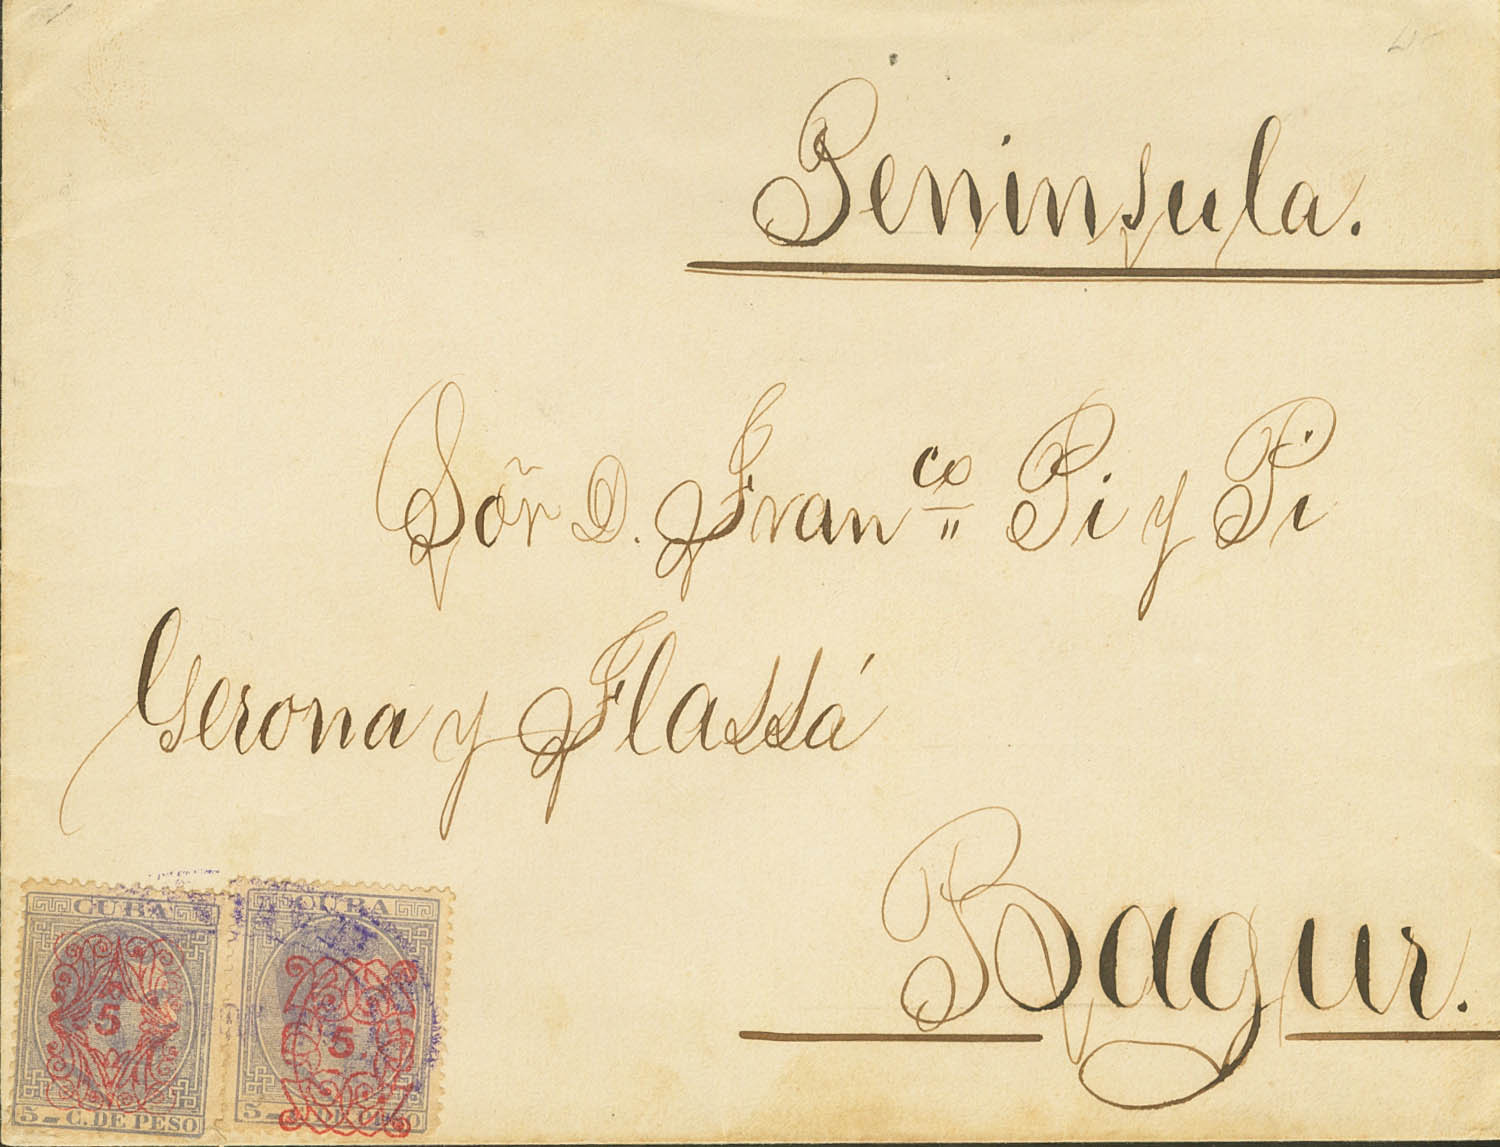 Peninsula.
Sõr D. Fran.co Pi y Pi
Gerona y Flassá
Bagur.
CUBA CUBA
5 5
5 C. DE PESO 5